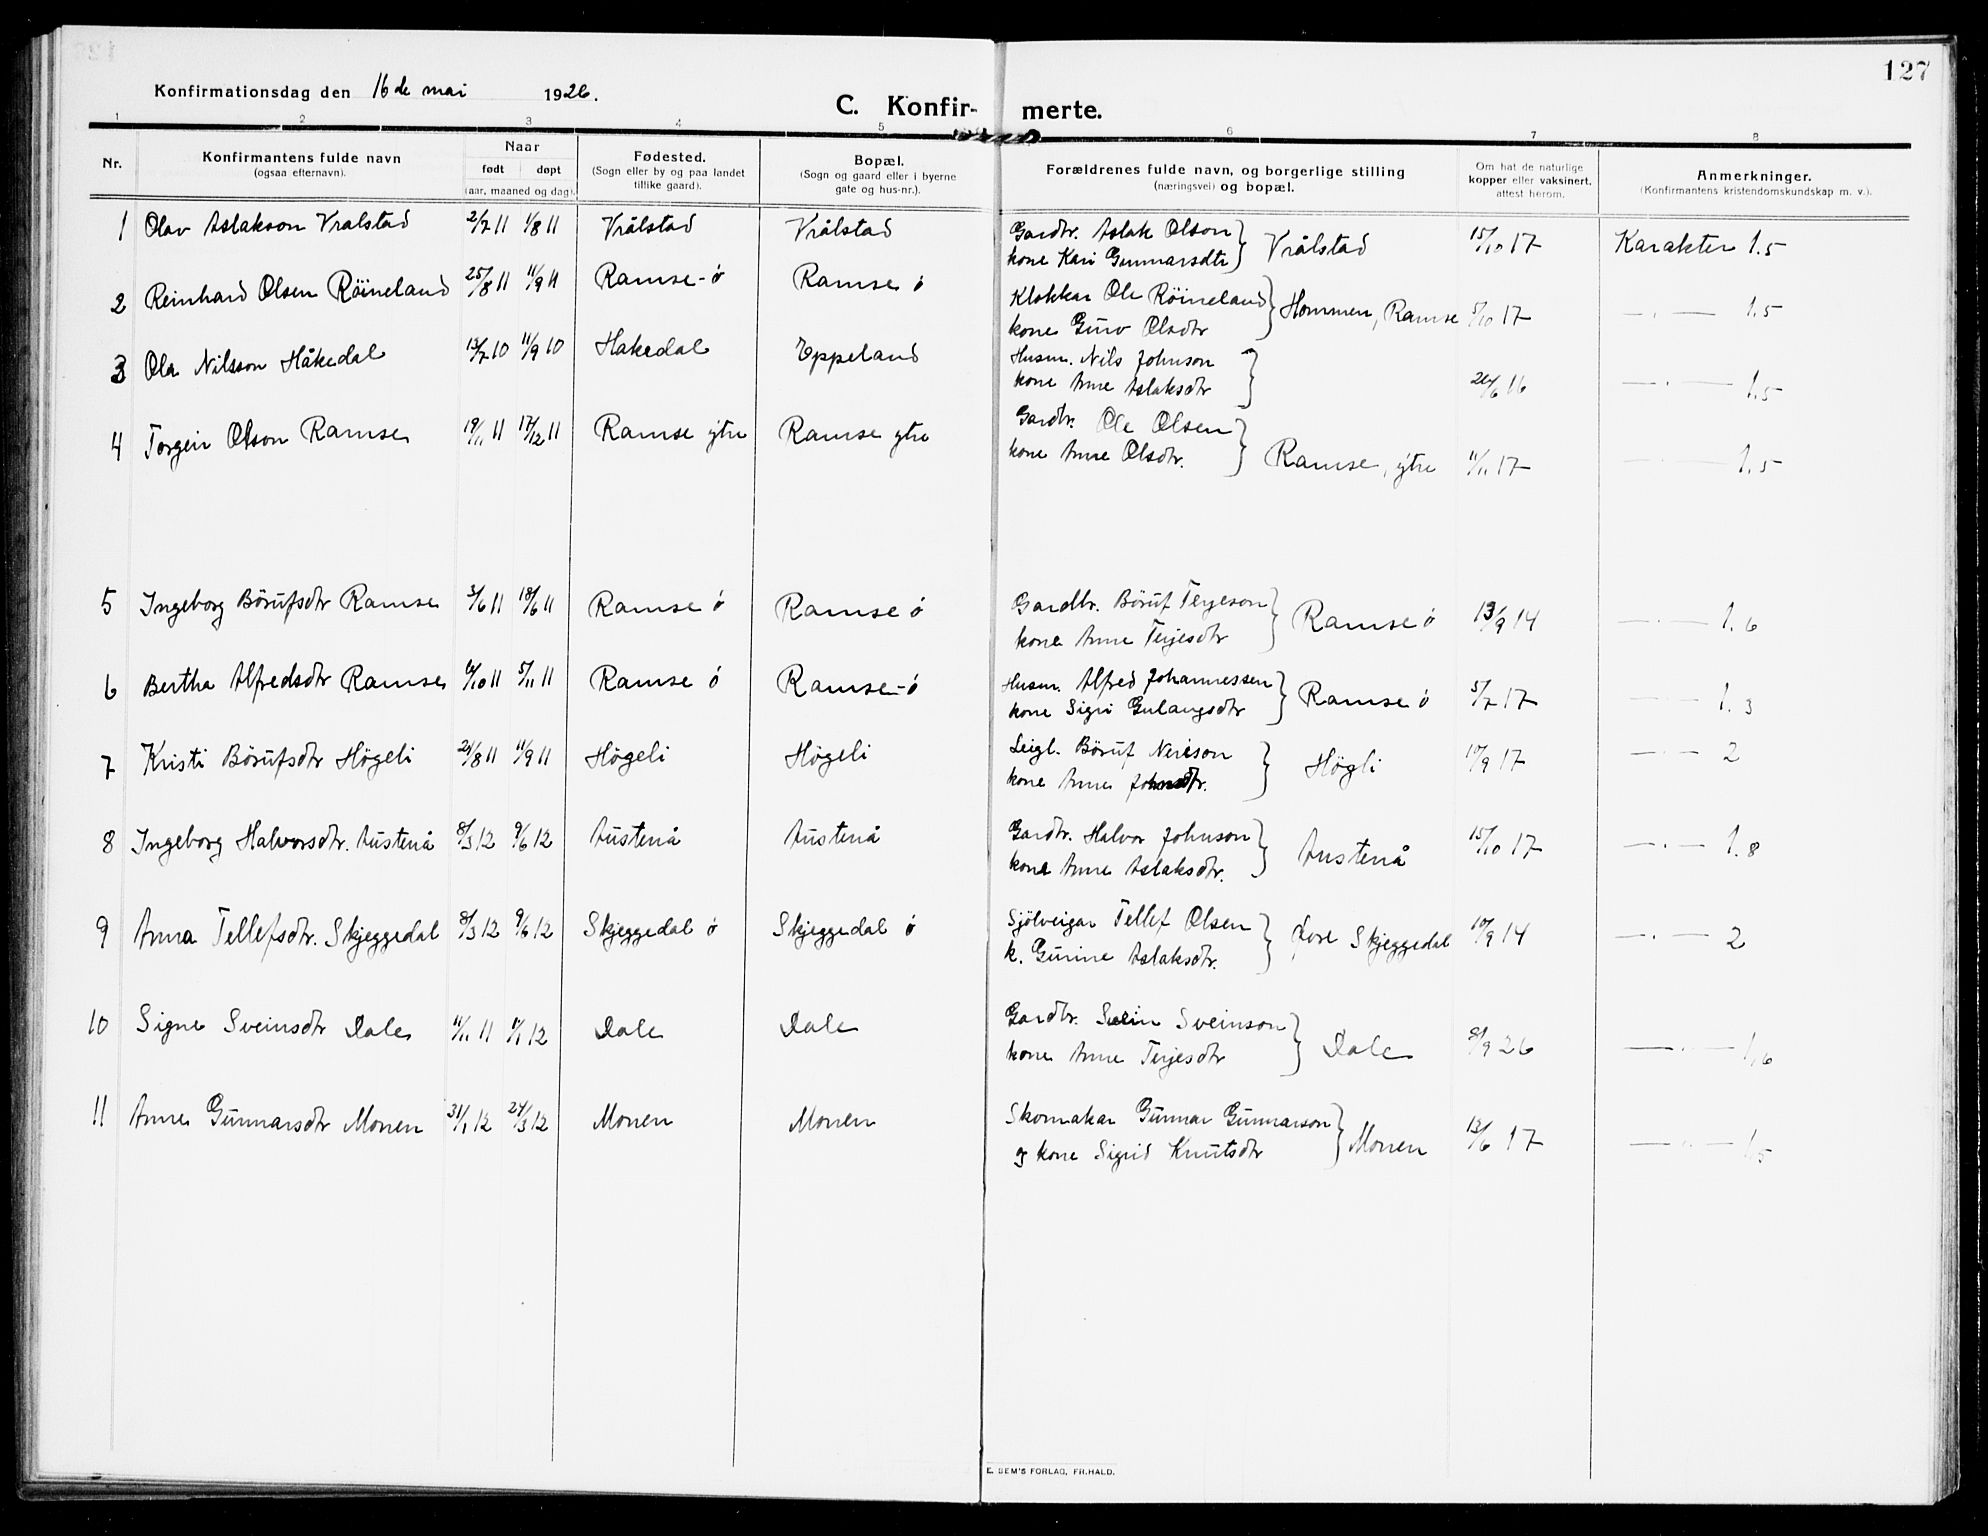 127
Konfirmationsdag den 16de mai 1926.
C. Konfir- merte.
1 2 3 4 5 6 7 8
Nr.
Konfirmantens fulde navn
(ogsaa efternavn).
Naar
født døpt
(aar, maaned og dag).
Fødested.
(Sogn eller by og paa landet
tillike gaard).
Bopæl.
(Sogn og gaard eller i byerne
gate og hus-nr.).
Forældrenes fulde navn, og borgerlige stilling
(næringsvei) og bopæl.
Om hat de naturlige
kopper eller vaksinert,
attest herom.
Anmerkninger.
(Konfirmantens kristendomskundskap m. v.).
1 Olav Aslakson Vrålstad 2/7 11 1/8 11 Vrålstad Vrålstad Gardbr. Aslak Olson } Vrålstad 15/10 17 Karakter 1.5
kone Kari Gunnarsdtr
2 Reinhard Olsen Röineland 25/8 11 11/9 11 Ramse-ö Ramse ö Klokkar Ole Röineland } Hommen, Ramse 5/10 17 — . — 1.5
kone Guro Olsdtr
3 Ola Nilsson Håkedal 13/7 10 11/9 10 Hakedal Eppeland Husm. Nils Johnson } 26/6 16 — . — 1.5
kone Anne Aslaksdtr
4 Torgeir Olson Ramse 19/11 11 17/12 11 Ramse ytre Ramse ytre Gardbr. Ole Olsen } Ramse, ytre 11/11 17 — . — 1.5
kone Anne Olsdtr.
5 Ingeborg Börufsdtr Ramse 3/6 11 18/6 11 Ramse ö Ramse ö Gardbr. Böruf Terjeson } Ramse ö 13/9 14 — . — 1.6
kone Anne Terjesdtr
6 Bertha Alfredsdtr Ramse 6/10 11 5/11 11 Ramse ö Ramse-ö Husm. Alfred Johannessen } Ramse ö 5/7 17 — . — 1.3
kone Sigri Gulaugsdtr
7 Kristi Börufsdtr Högeli 21/8 11 11/9 11 Högeli Högeli Leigl. Böruf Nerison } Högli 10/9 17 — . — 2
kone Anne Johnsdtr.
8 Ingeborg Halvorsdtr. Austenå 8/3 12 9/6 12 Austenå Austenå Gardbr. Halvor Johnson } Austenå 15/10 17 — . — 1.8
kone Anne Aslaksdtr.
9 Anna Tellefsdtr. Skjeggedal 8/3 12 9/6 12 Skjeggedal ö Skjeggedal ö Sjölveigar Tellef Olsen } Skjeggedal 10/9 14 — . — 2
k. Gunne Aslaksdtr.
10 Signe Sveinsdtr Dale 11/11 11 1/1 12 Dale Dale Gardbr. Svein Sveinson } Dale 8/9 26 — . — 1.6
kone Anne Terjesdtr
11 Anne Gunnarsdtr Monen 31/1 12 24/3 12 Monen Monen Skomakar Gunnar Gunnarson } Monen 13/6 17 — . — 1.5
og kone Sigrid Knutsdtr
E. SEM'S FORLAG, FR.HALD.